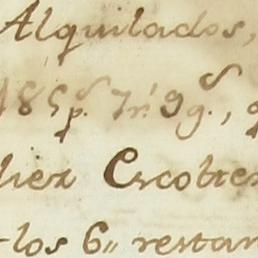 Alquilados,
185 p.s 7 r.s 9 g.s,
Escoltes
los 6,, restan